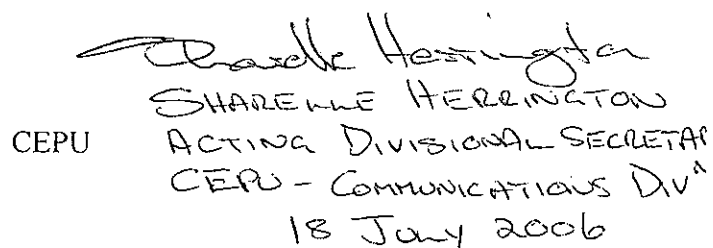 Sharelle Herrington
SHARELLE HERRINGTON
CEPU ACTING DIVISIONAL SECRETAR
CEPU - COMMUNICATIONS DIVN
18 JULY 2006